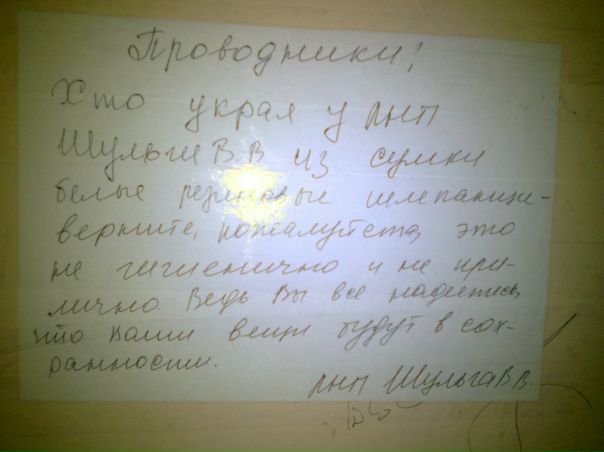 Проводники!
Хто украл у ЛНП
Шульги В В из сумки
белые резиновые шлепанци-
верните, пожалуйста, это
не гигиенично и не при-
лично Ведь Вы все надеетесь
что ваши вещи будут в сох-
ранности.
ЛНП Шульга В В.